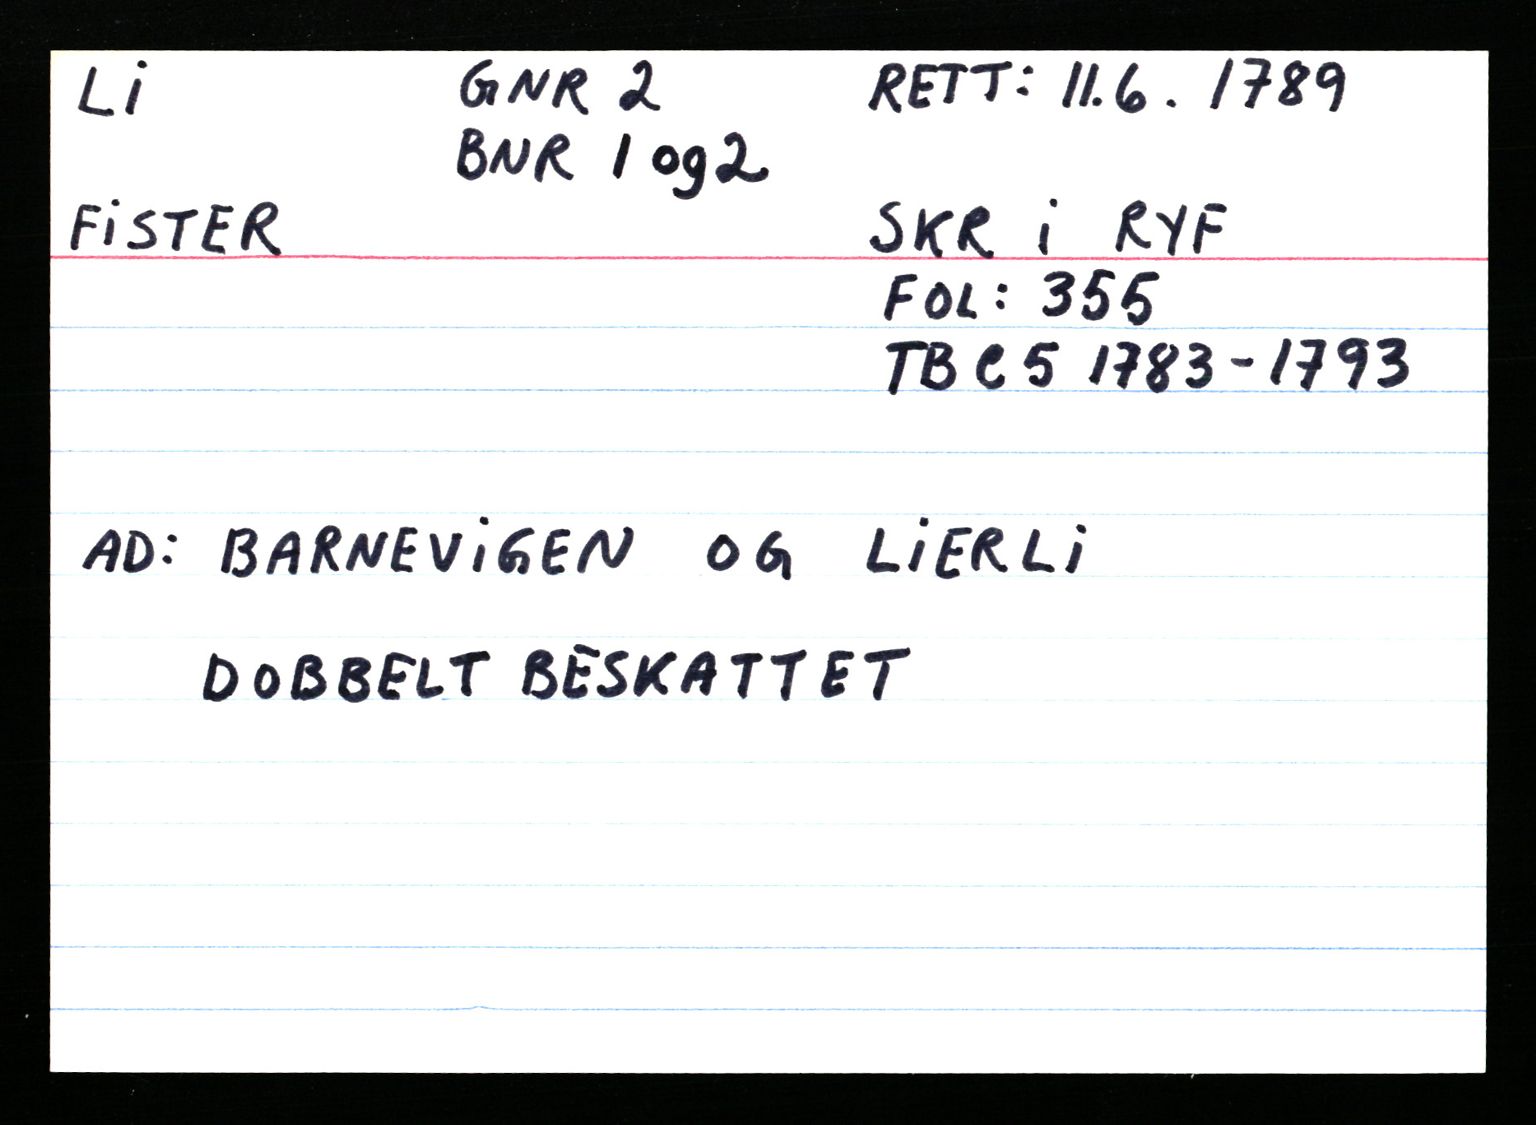 Li GNR 2 RETT: 11.6. 1789
BNR 1 og 2
FiSTER SKR i RYF
FOL: 355
TB C 5 1783-1793
AD: BARNEViGEN OG LiERLi
DOBBELT BESKATTET